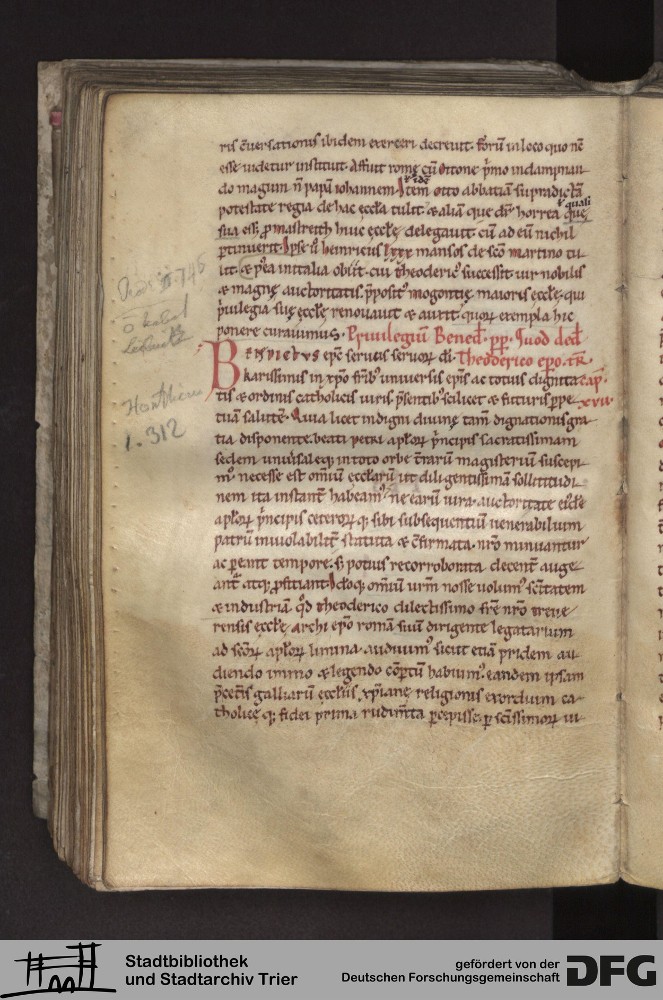 ris c̄uersationis ibidem exerceri decreuit. Horū in loco quo nc̄
esse uidetur instituit. Affuit romę cū Ottone p̄mo in dampnan
do magnū n̄ papā iohannem. Item Otto abbatiā supradictā
ł idē
potestate regia de hac eccl̄a tulit. & aliā que dr̄ horrea quę
ł quali
sua ess; p mastreith huic ęccl̄ę delegauit. cū ad eū nichil
ptinuerit. Ipse ū heinricus lxxx mansos de sc̄o martino tu
lit. & p̄ea in italia obiit. cui theoderic' successit. uir nobilis
& magnę auctoritatis. p̄posit' mogontię maioris eccl̄ę. qui
p̄uilegia suę ęccl̄ę renouauit & auxit. quoꝝ exempla hic
ponere curauimus. Priuilegiū Bened̄. pp. Quod ded̄
BENEDICTVS ep̄c seruus seruoꝝ dī. Theoderico ep̄o. tr̄.
karissimis in xp̄o fr̄ib' uniuersis ep̄is ac totius dignita cap̄.
tis & ordinis catholicis uiris p̄sentib' scilicet & futuris ppe xvii.
tuā salutē. Quia licet indigni diuinę tam̄ dignationis gra
tia disponente. beati petri ap̄loꝝ p̄ncipis sacratissimam
sedem uniūsaleq; in toto orbe tr̄arū magisteriū suscepi
m'. necesse est om̄iū ęccl̄arū ut diligentissimā sollicitudi
nem ita instant̄ habeam'. ne earū iura. auctoritate eiusdē
ap̄loꝝ p̄ncipis ceteroꝝq; sibi subsequentiū uenerabilium
patrū inuiolabilit̄ statuta & c̄firmata. nr̄o minuantur
ac peant tempore. s; potius recorroborata decent̄ auge
ant̄ atq; pficiant. Idoq; om̄iū ur̄m nosse uolum' sc̄itatem
& industriā. qd̄ theoderico dilectissimo fr̄e nr̄o treue
rensis ęccl̄ę archi ep̄o romā suū dirigente legatarium
ad sc̄oꝝ ap̄loꝝ limina. audiuim' sicut etiā pridem au
diendo immo & legendo c̄ptū habuim'. eandem ipsam
p̄cet̄is galliarū ęccl̄iis xp̄ianę religionis exordium ca
tholicę q; fidei prima rudim̄ta pcepisse. p sc̄issimoꝝ ui
o kebel
Hontheim
1. 312
Stadtbibliothek
und Stadtarchiv Trier
gefördert von der
Deutschen Forschungsgemeinschaft
DFG